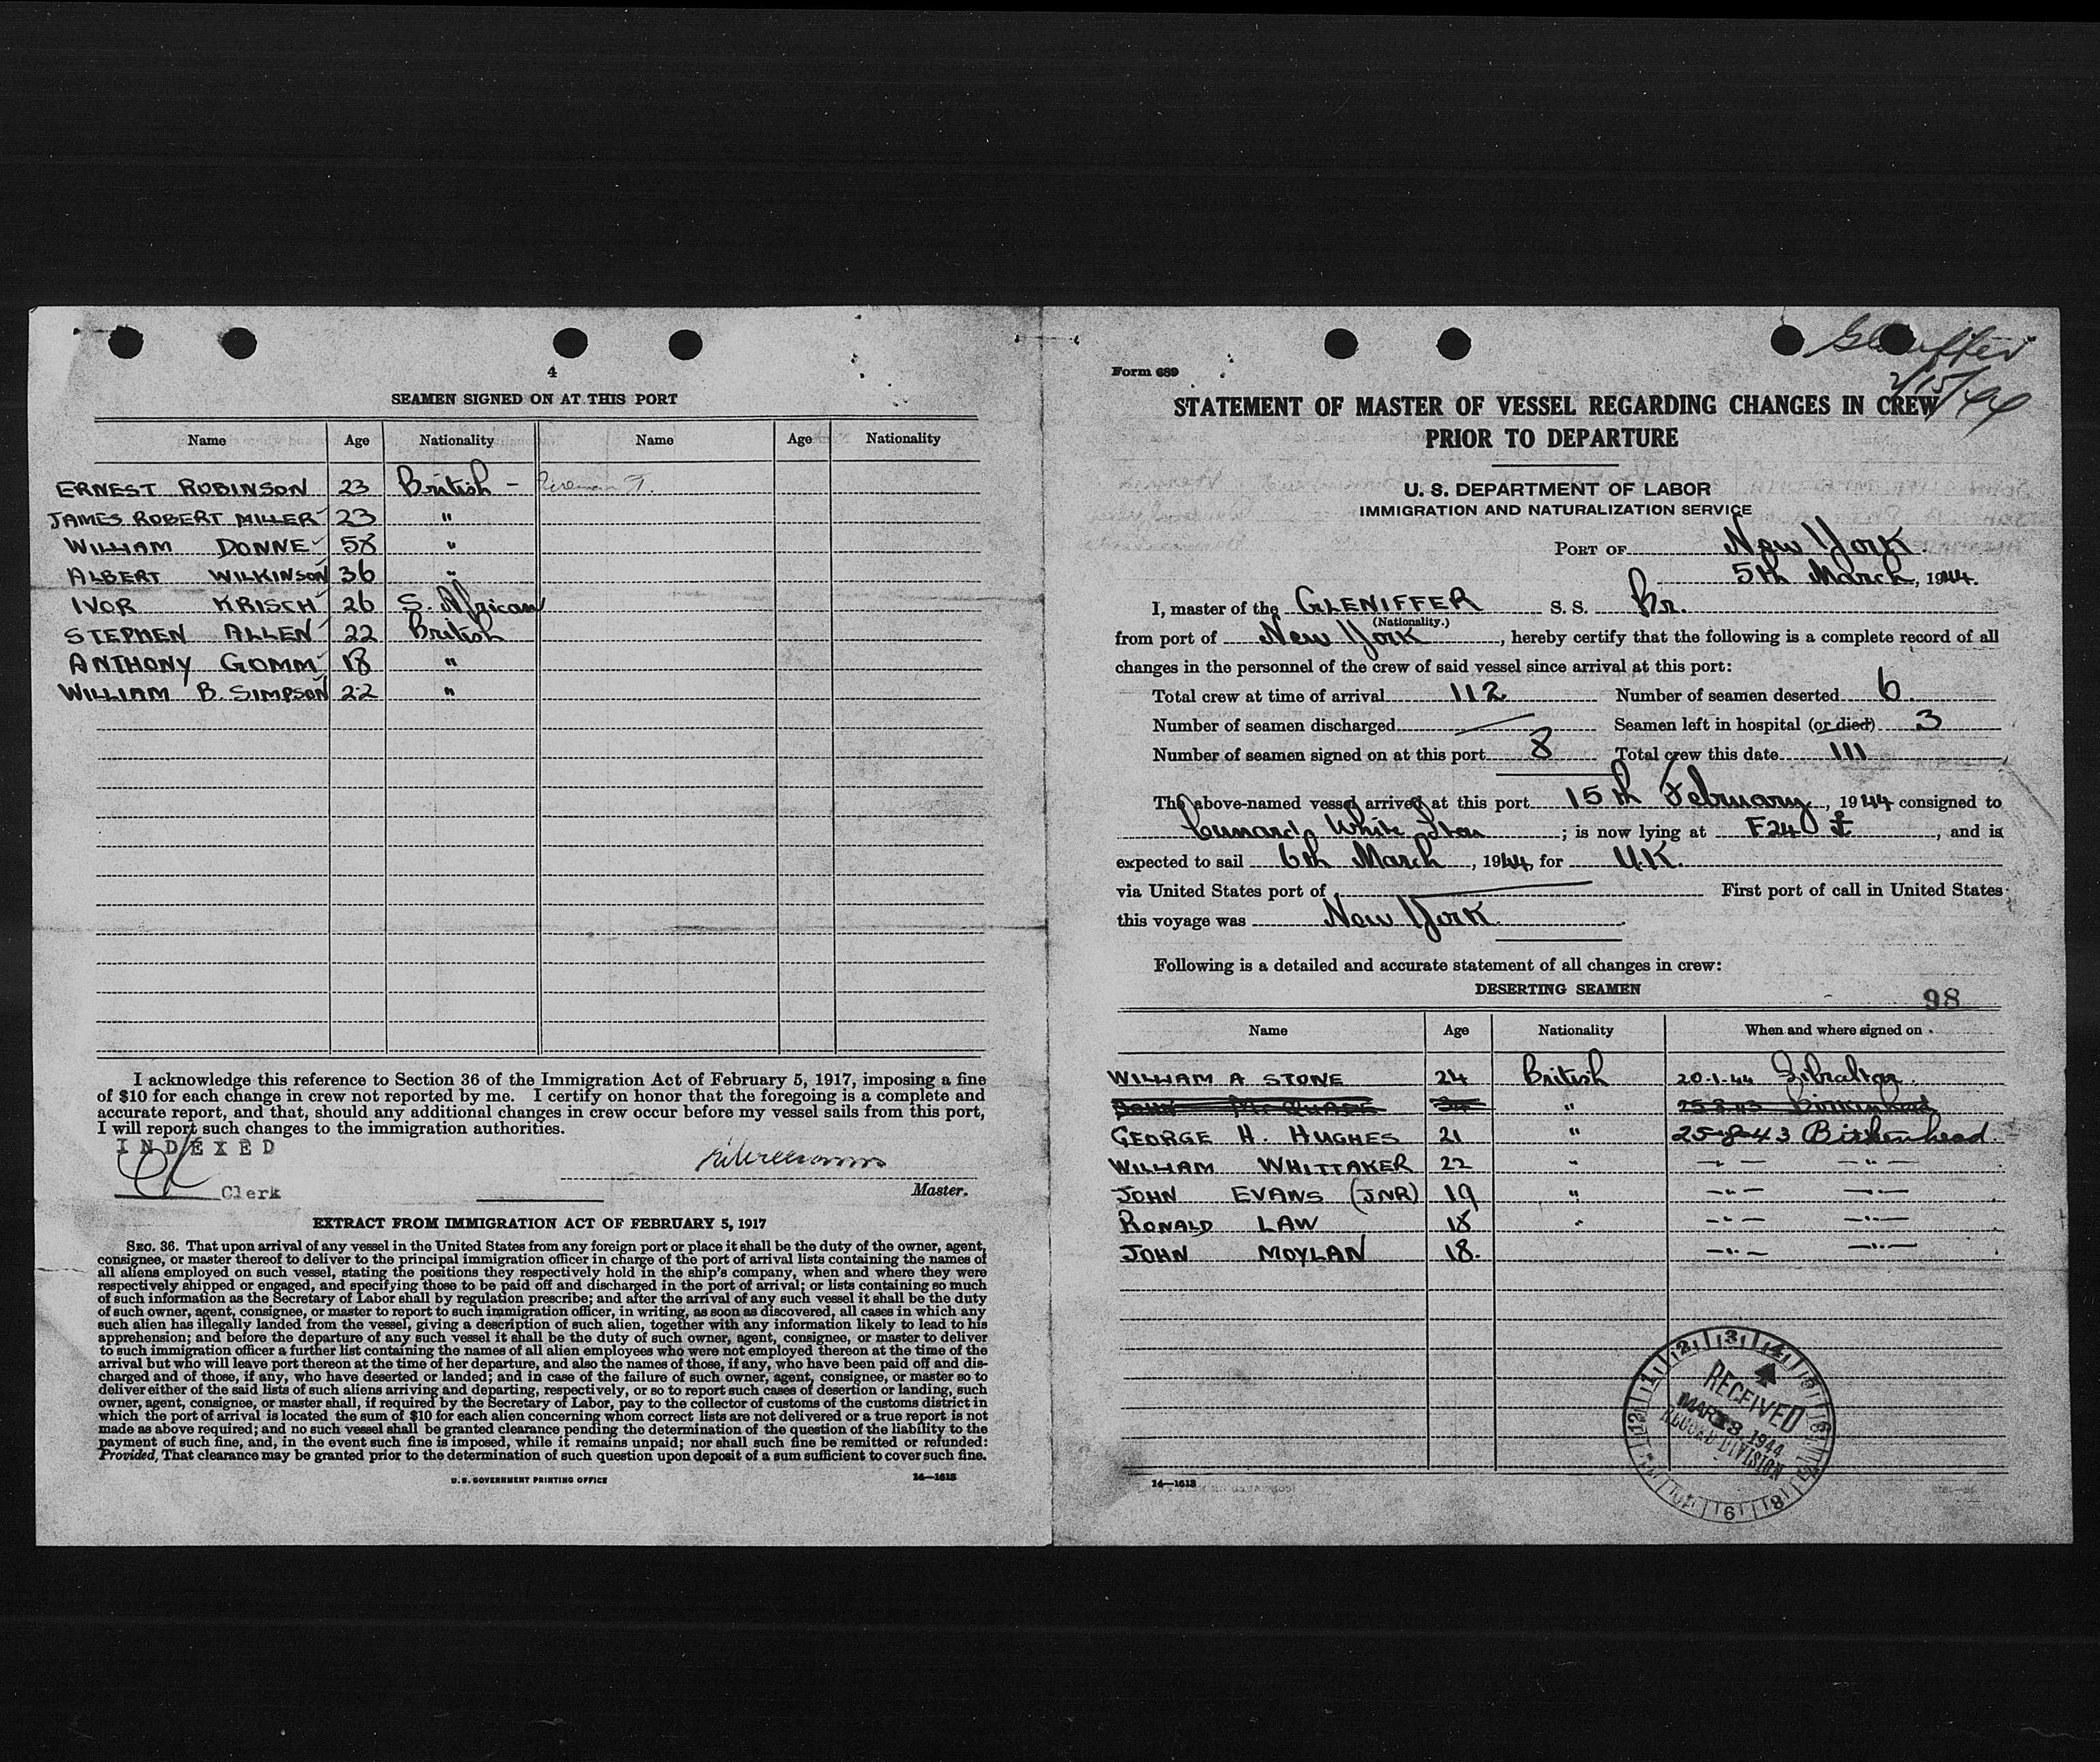 4
SEAMEN SIGNED ON AT THIS PORT
Name Age Nationality Name Age Nationality
ERNEST ROBINSON 23 British -
JAMES ROBERT MILLER 23 "
WILLIAM DONNE 58 "
ALBERT WILKINSON 36 "
IVOR KRISCH 26 S. African
STEPHEN ALLEN 22 British
ANTHONY GOMM 18 "
WILLIAM B. SIMPSON 22 "
I acknowledge this reference to Section 36 of the Immigration Act of February 5, 1917, imposing a fine
of $10 for each change in crew not reported by me. I certify on honor that the foregoing is a complete and
accurate report, and that, should any additional changes in crew occur before my vessel sails from this port,
I will report such changes to the immigration authorities.
INDEXED
Clerk
Master.
EXTRACT FROM IMMIGRATION ACT OF FEBRUARY 5, 1917
SEC. 36. That upon arrival of any vessel in the United States from any foreign port or place it shall be the duty of the owner, agent,
consignee, or master thereof to deliver to the principal immigration officer in charge of the port of arrival lists containing the names of
all aliens employed on such vessel, stating the positions they respectively hold in the ship's company, when and where they were
respectively shipped or engaged, and specifying those to be paid off and discharged in the port of arrival; or lists containing so much
of such information as the Secretary of Labor shall by regulation prescribe; and after the arrival of any such vessel it shall be the duty
of such owner, agent, consignee, or master to report to such immigration officer, in writing, as soon as discovered, all cases in which any
such alien has illegally landed from the vessel, giving a description of such alien, together with any information likely to lead to his
apprehension; and before the departure of any such vessel it shall be the duty of such owner, agent, consignee, or master to deliver
to such immigration officer a further list containing the names of all alien employees who were not employed thereon at the time of the
arrival but who will leave port thereon at the time of her departure, and also the names of those, if any, who have been paid off and dis-
charged and of those, if any, who have deserted or landed; and in case of the failure of such owner, agent, consignee, or master so to
deliver either of the said lists of such aliens arriving and departing, respectively, or so to report such cases of desertion or landing, such
owner, agent, consignee, or master shall, if required by the Secretary of Labor, pay to the collector of customs of the customs district in
which the port of arrival is located the sum of $10 for each alien concerning whom correct lists are not delivered or a true report is not
made as above required; and no such vessel shall be granted clearance pending the determination of the question of the liability to the
payment of such fine, and, in the event such fine is imposed, while it remains unpaid; nor shall such fine be remitted or refunded:
Provided, That clearance may be granted prior to the determination of such question upon deposit of a sum sufficient to cover such fine.
U. S. GOVERNMENT PRINTING OFFICE 14—1618
Gleniffer
2/15/44
Form 689
STATEMENT OF MASTER OF VESSEL REGARDING CHANGES IN CREW
PRIOR TO DEPARTURE
U. S. DEPARTMENT OF LABOR
IMMIGRATION AND NATURALIZATION SERVICE
PORT OF New York
5th March, 1944.
I, master of the GLENIFFER S. S. Br.
(Nationality.)
from port of New York, hereby certify that the following is a complete record of all
changes in the personnel of the crew of said vessel since arrival at this port:
Total crew at time of arrival 112 Number of seamen deserted 6.
Number of seamen discharged Seamen left in hospital (or died) 3
Number of seamen signed on at this port 8 Total crew this date 111
The above-named vessel arrived at this port 15th February, 1944 consigned to
Cunard White Star; is now lying at F24, and is
expected to sail 6th March, 1944, for U.K.
via United States port of First port of call in United States
this voyage was New York.
Following is a detailed and accurate statement of all changes in crew:
DESERTING SEAMEN
98
Name Age Nationality When and where signed on
WILLIAM A STONE 24 British 20.1.44 Gibraltar.
JOHN " 25.8.43 Birkenhead
GEORGE H. HUGHES 21 " 25-8-43 Birkenhead.
WILLIAM WHITTAKER 22 " —"— —"—
JOHN EVANS (JNR) 19 " —"— —"—
RONALD LAW 18 " —"— —"—
JOHN MOYLAN 18. —"— —"—
RECEIVED
1944
DIVISION
14—1618